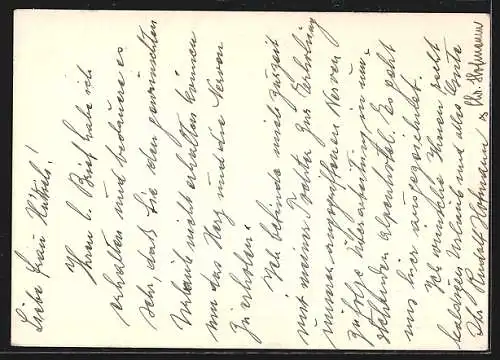 Liebe Frau
Ihren l. Brief habe ich
erhalten und bedauere es
sehr, daß Sie den gewünschten
Urlaub nicht erhalten können
um das Herz und die Nerven
zu erholen.
Ich befinde mich zurzeit
mit meiner Tochter zur Erholung
unserer angegriffenen Nerven
zufolge Überarbeitung in um-
stehenden Alpenhotel. Es geht
uns hier ausgezeichnet.
Ich wünsche Ihnen recht
baldigen Urlaub und alles Gute
Ihr Rudolf Hofmann & Chr. Hofmann